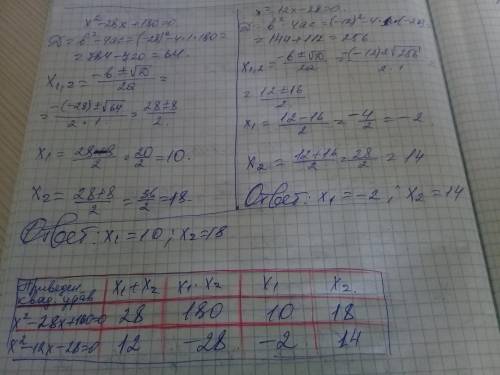 x²-28x+180=0
D = b²-4ac=(-28)²-4·1·180=
= 784-720=64.
x₁,₂ = (-b±√D)/2a =
= (-(-28)±√64)/(2·1) = (28±8)/2
x₁ = (28-8)/2 = 20/2 = 10.
x₂ = (28+8)/2 = 36/2 = 18.
Ответ: x₁=10; x₂=18
x²-12x-28=0.
D= b²-4ac=(-12)²-4·1·(-28)=
= 144+112=256
x₁,₂ = (-b±√D)/2a = (-(-12)±√256)/(2·1)
= (12±16)/2
x₁ = (12-16)/2 = -4/2 = -2
x₂ = (12+16)/2 = 28/2 = 14
Ответ: x₁=-2; x₂=14
Приведен. квад. урав x₁+x₂ x₁·x₂ x₁ x₂.
x²-28x+180=0 28 180 10 18
x²-12x-28=0 12 -28 -2 14